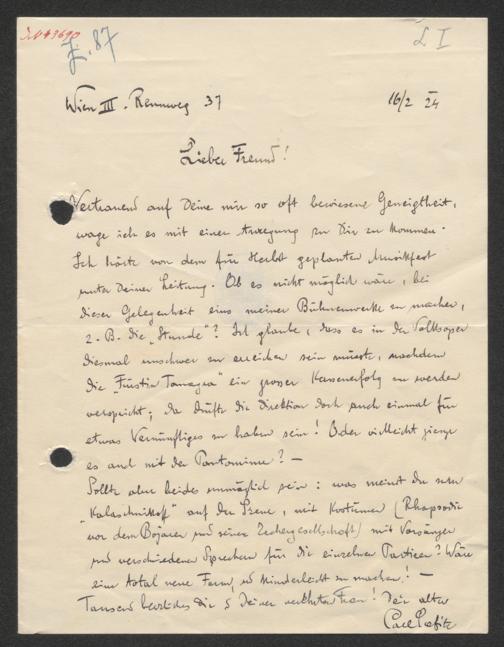 J. 87
L I
Wien III. Rennweg 37
16/2 24
Lieber Freund!
Vertrauend auf Deine mir so oft bewiesene Geneigtheit,
wage ich es mit einer Anregung zu Dir zu kommen.
Ich hörte von dem für Herbst geplanten Musikfest
unter Deiner Leitung. Ob es nicht möglich wäre, bei
dieser Gelegenheit eins meiner Bühnenwerke zu machen,
z. B. die „Stunde"? Ich glaube, dass es in der Volksoper
diesmal unschwer zu erreichen sein müsste, nachdem
die „Fürstin Tanagra" ein grosser Kassenerfolg zu werden
verspricht; da dürfte die Direktion doch auch einmal für
etwas Vernünftiges zu haben sein! Oder vielleicht ginge
es auch mit der Pantomime? —
Sollte aber beides unmöglich sein: was meinst du zum
„Kalaschnikoff" auf der Szene, mit Kostümen (Rhapsodie
vor dem Bojaren und seiner Zechergesellschaft) mit Vorsänger
und verschiedenen Sprechern für die einzelnen Partieen? Wäre
eine total neue Form, und kinderleicht zu machen! —
Tausend herzliches Dir & Deiner verehrten Frau! Dein alter